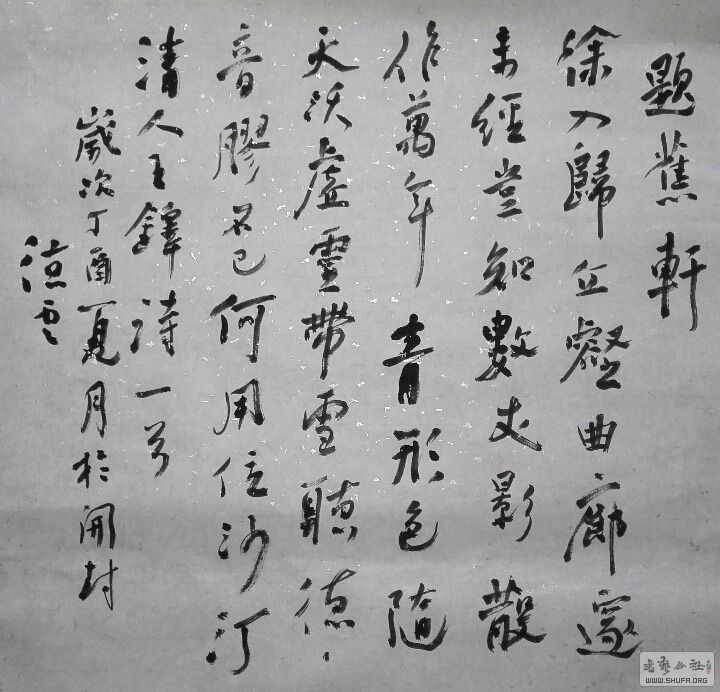 題蕉軒
徐入歸丘壑曲廊邃
未經豈知數丈影散
作萬年青形色隨
天沃虛靈帶雪聽德
音膠不已何用住沙汀
清人王鐸詩一首
歲次丁酉夏月於開封
雲
书艺公社
WWW.SHUFA.ORG